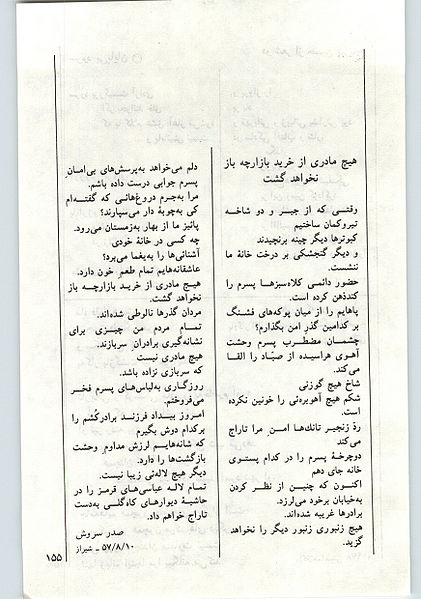 هیچ مادری از خرید بازارچه باز
نخواهد گشت
وقتــی که از جبــر و دو شاخــه
تیروکمان ساختیم
کبوترها دیگر چینه برنچیدند
و دیگر گنجشکی بر درخت خانهٔ ما
ننشست.
حضور دائمـی کلاه‌سبزهـا پسرم را
کندذهن کرده است.
پاهایم را از میان پوکه‌های فشنـگ
بر کدامین گذر امن بگذارم؟
چشمــان مضطــرب پسرم وحشت
آهـوی هـراسیـده از صیـّاد را القـا
می‌کند
شاخ هیچ گوزنی
شکم هیچ آهوبره‌ئی را خونین نکرده
است.
ردّ زنجیـر تانك‌ها امـن مـرا تاراج
می‌کند
دوچرخهٔ پسرم را در کدام پستـوی
خانه جای دهم
اکنــون که چنیـن از نظـر کردن
به‌خیابان برخود می‌لرزد.
برادرها غریبه شده‌اند.
هیچ زنبوری زنبور دیگر را نخواهد
گزید.
دلم می‌خواهد به‌پرسش‌های بی‌امـانِ
پسرم جوابی درست داده باشم.
مرا به‌جـرم دروغ‌هائـی که گفتـه‌ام
کی به‌چوبهٔ دار می‌سپارند؟
پائیز ما از بهار به‌زمستان می‌رود.
چه کسی در خانهٔ خودی
آشنائی‌ها را به‌یغما می‌برد؟
عاشقانه‌هایم تمام طعم خون دارد.
هیـچ مادری از خریـد بازارچـه باز
نخواهد گشت.
مردان گذرها نالوطی شده‌اند.
تمـام مردم من چیـزی برای
نشانه‌گیری برادران سربازند.
هیچ مادری نیست
که سربازی نزاده باشد.
روزگـاری به‌لباس‌های پسرم فخـر
می‌فروختم.
امـروز بیـداد فرزنـد برادرکُشـم را
برکدام دوش بگیرم
که شانه‌هایـم لرزش مداومِ وحشت
بازگشت‌ها را دارد.
دیگر هیچ لاله‌ئی زیبا نیست.
تمـام لالـه عباسی‌های قرمـز را در
حاشیـهٔ دیوارهـای کاه‌گلـی به‌دست
تاراج خواهم داد.
صدر سروش
۵۷/۸/۱۰ ـ شیراز
۱۵۵